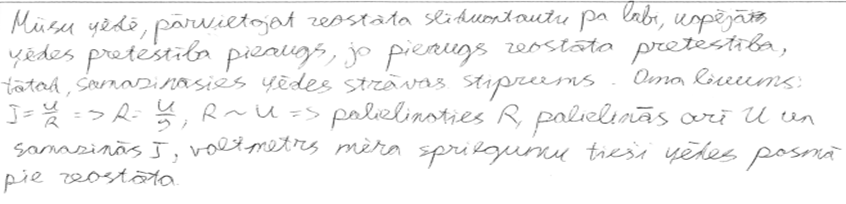 Mūsu ķēdē, pārvietojot reostata slīdkontaktu pa labi, kopējā
ķēdes pretestība pieaugs, jo pieaugs reostāta pretestība,
tātad, samazināsies ķēdes strāvas stiprums. Oma likums:
I = U/R => R = U/I, R ~ U => palielinoties R, palielinās arī U un
samazinās I, voltmetrs mēra spriegumu tieši ķēdes posmā
pie reostāta